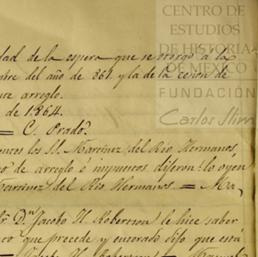 CENTRO DE
ESTUDIOS
DE HISTORIA
DE MÉXICO
FUNDACIÓN
Carlos Slim
dad de la espera que se otorgó a la
bre del año de 861. y la de la cesion de
te arreglo.
de 1864.
= C. Prado.
mos los SS. Martinez del Rio Hermanos
de arreglo é impuestos dijeron: lo oyen
Martinez del Rio Hermanos = Ma,
Dn. Jacobo H. Robertson le hice saber
que precede y enterado dijo que está